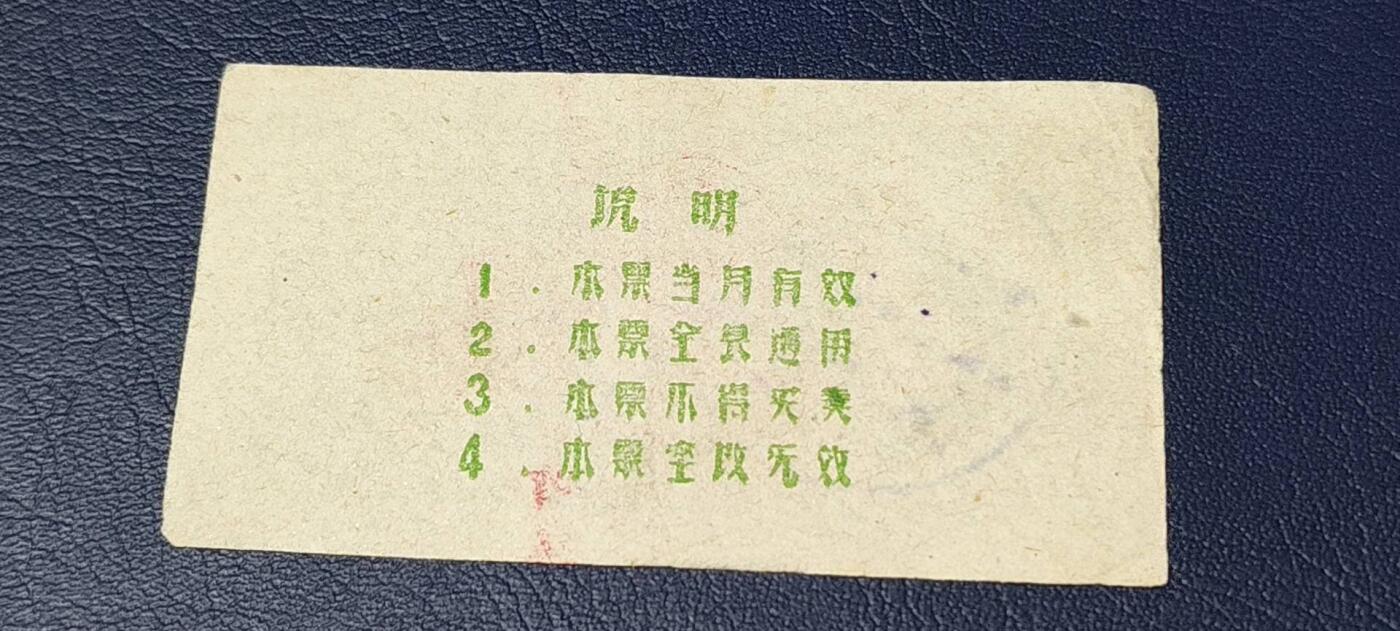 说明
1．本票当月有效
2．本票全县通用
3．本票不得买卖
4．本票涂改无效